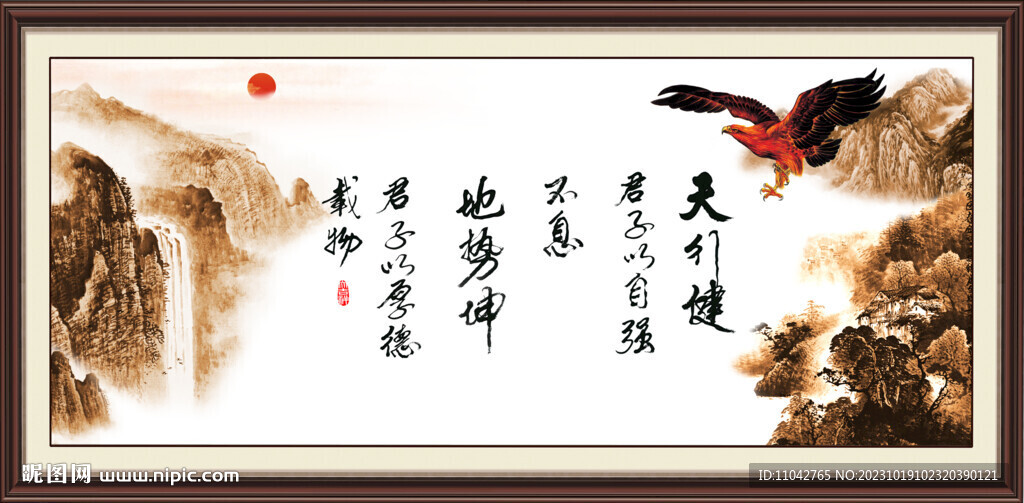 天行健
君子以自强
不息
地势坤
君子以厚德
载物
昵图网 www.nipic.com
ID:11042765 NO:20231019102320390121